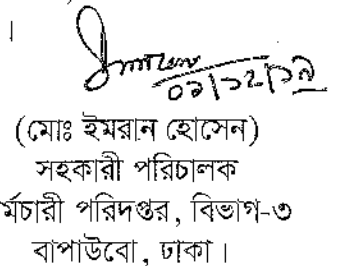 ।
০২/১২/১৯
(মোঃ ইমরান হোসেন)
সহকারী পরিচালক
র্মচারী পরিদপ্তর, বিভাগ-৩
বাপাউবো, ঢাকা।